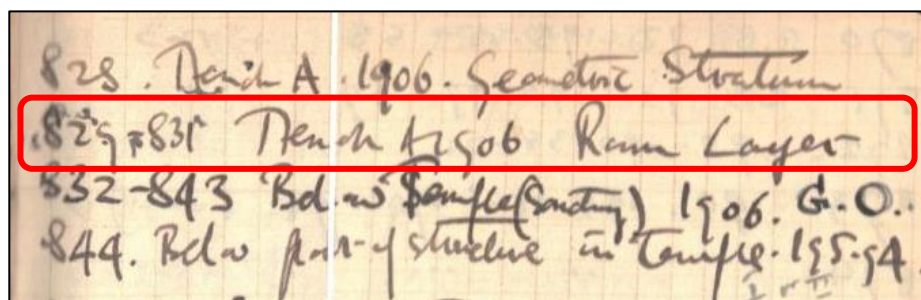 828. Trench A. 1906. Geometric Stratum
829-831 Trench A 1906 Ram Layer
832-843 Below Temple (Sanctuary) 1906. G.O.
844. Below floor of structure in Temple. 195.94